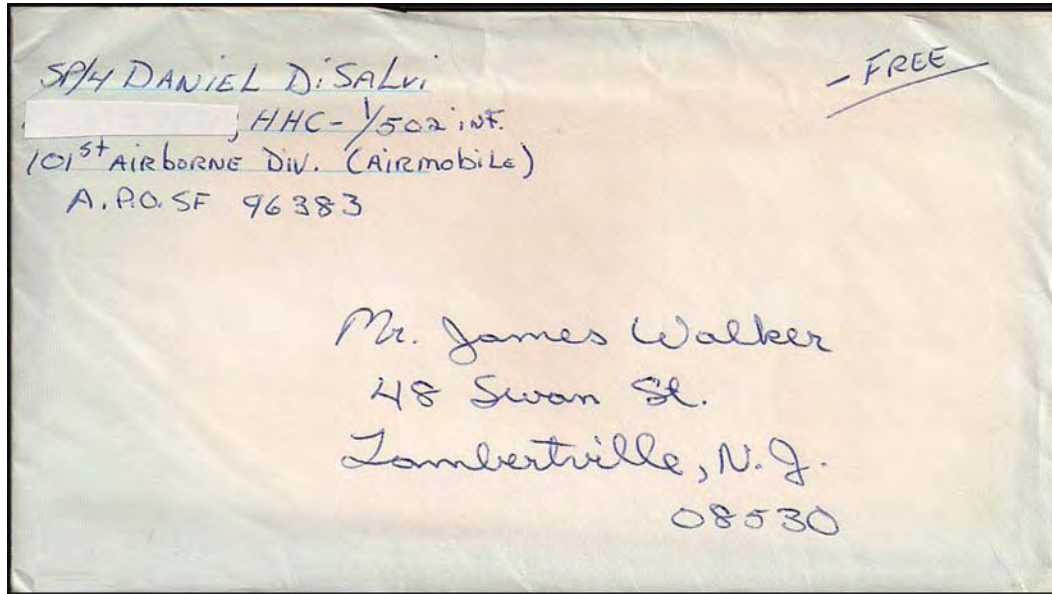 SP/4 DANIEL DiSALVi
, HHC - 1/502 iNF.
101st AIRbORNE DiV. (AIRmobiLE)
A.P.O. SF 96383
- FREE
Mr. James Walker
48 Swan St.
Lambertville, N.J.
08530